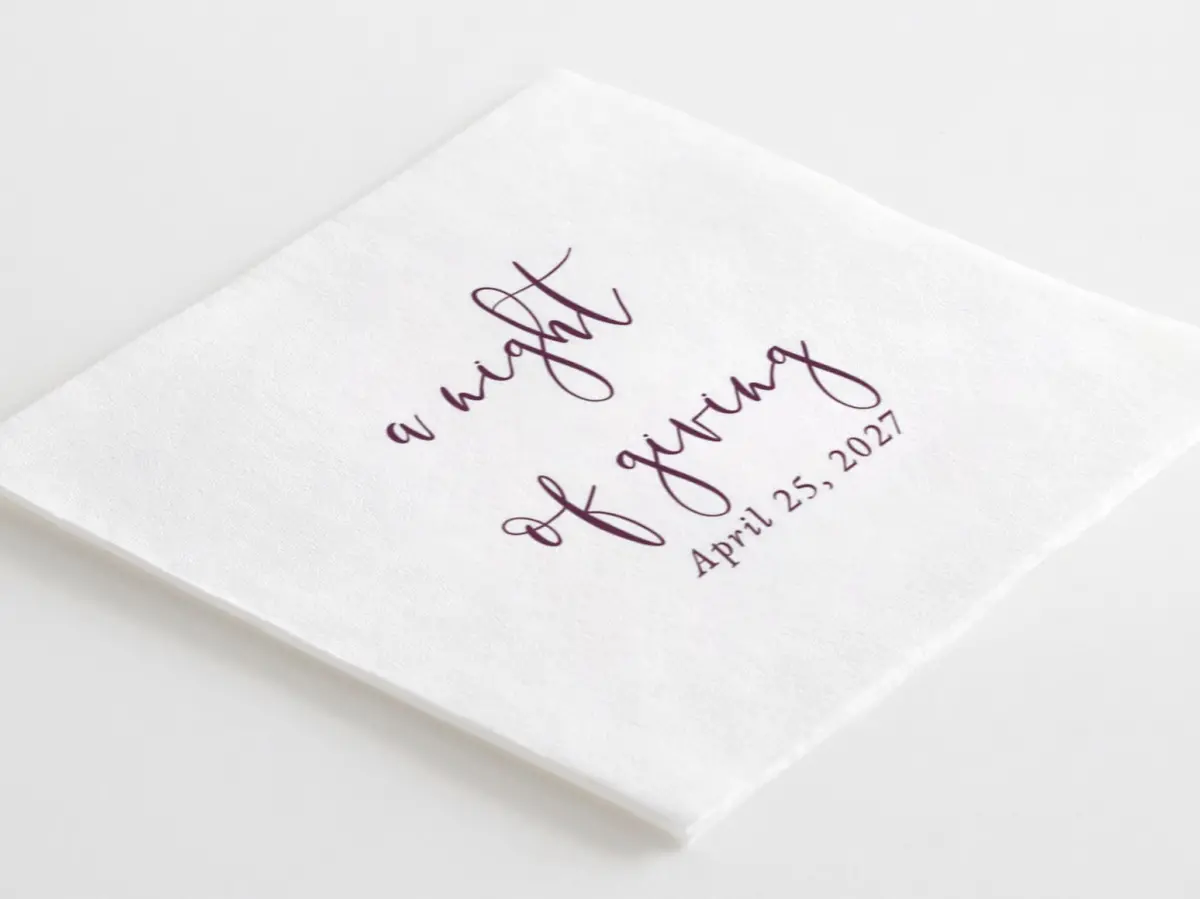 a night
of giving
April 25, 2027